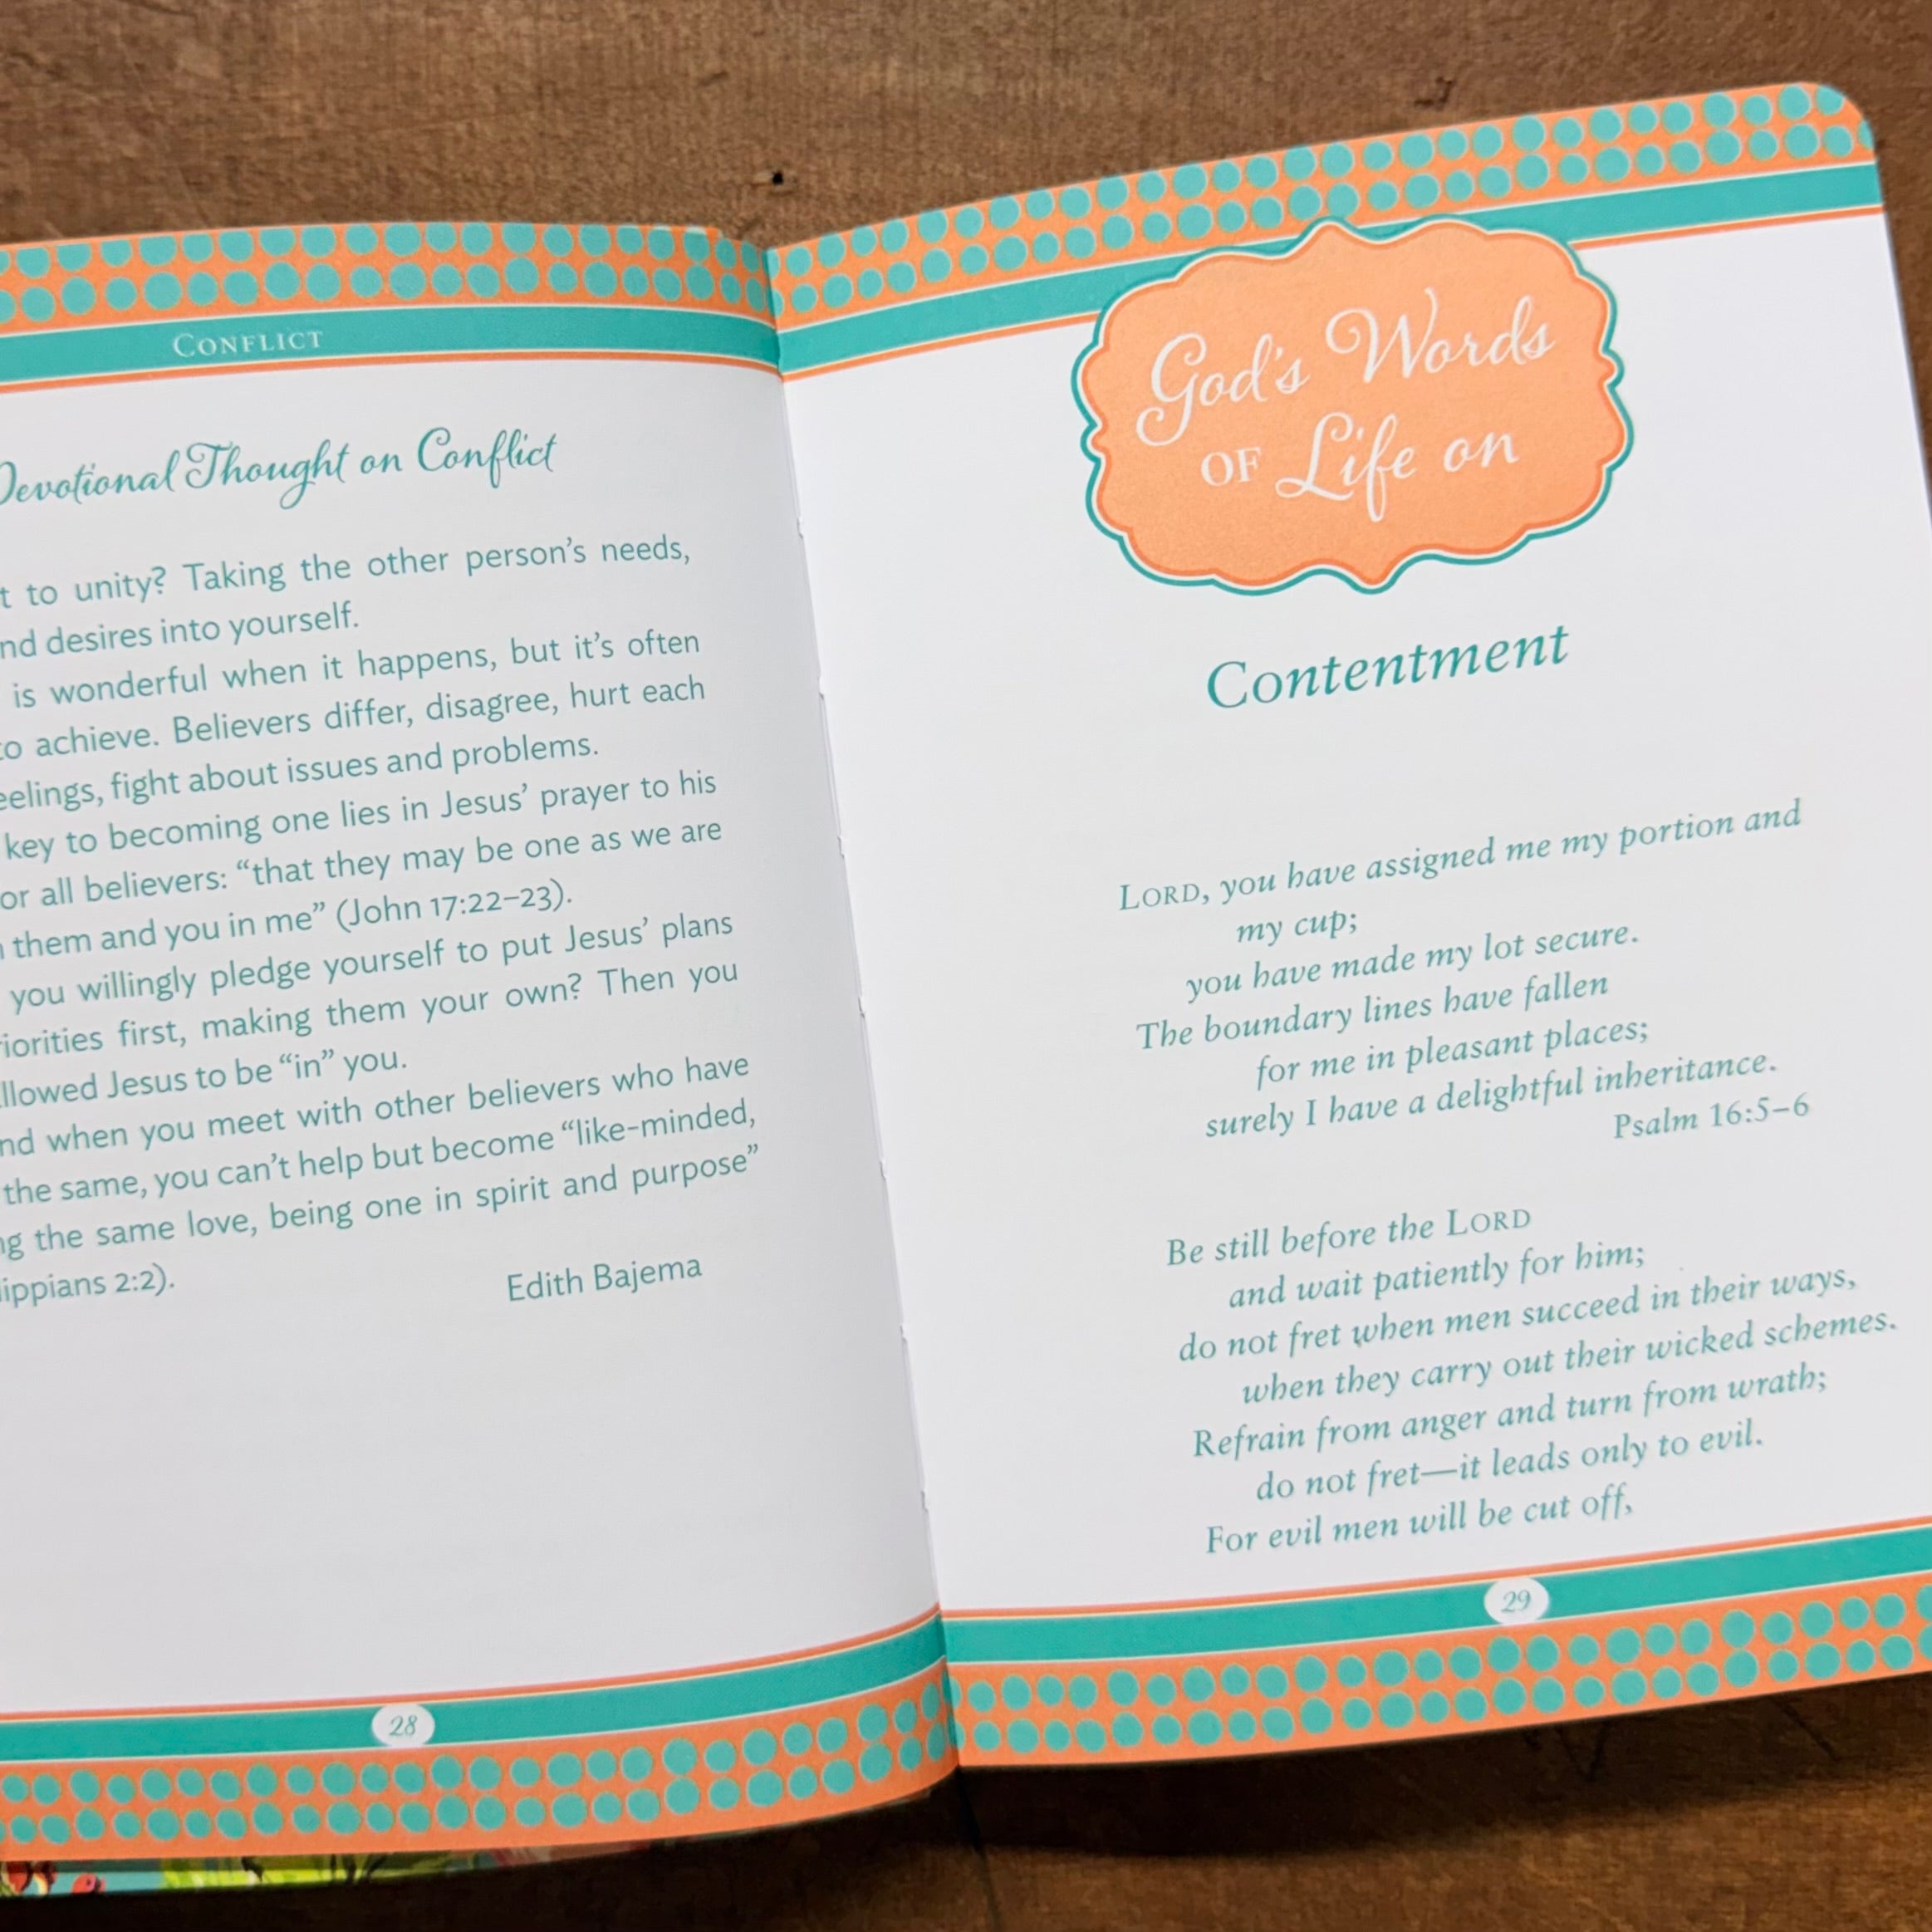 CONFLICT
Devotional Thought on Conflict
to unity? Taking the other person's needs,
desires into yourself.
is wonderful when it happens, but it's often
achieve. Believers differ, disagree, hurt each
fight about issues and problems.
key to becoming one lies in Jesus' prayer to his
all believers: “that they may be one as we are
them and you in me” (John 17:22–23).
you willingly pledge yourself to put Jesus' plans
first, making them your own? Then you
Jesus to be “in” you.
when you meet with other believers who have
the same, you can't help but become “like-minded,
the same love, being one in spirit and purpose”
2:2).
Edith Bajema
28
God's Words
OF Life on
Contentment
LORD, you have assigned me my portion and
my cup;
you have made my lot secure.
The boundary lines have fallen
for me in pleasant places;
surely I have a delightful inheritance.
Psalm 16:5–6
Be still before the LORD
and wait patiently for him;
do not fret when men succeed in their ways,
when they carry out their wicked schemes.
Refrain from anger and turn from wrath;
do not fret—it leads only to evil.
For evil men will be cut off,
29